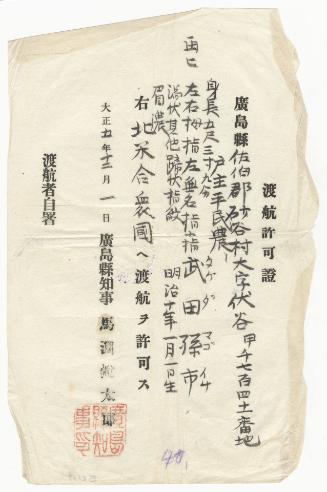 渡航許可證
廣島縣佐伯郡砂谷村大字伏谷甲千七百四十一番地
戸主平民農
武田孫市
タケダマゴイチ
明治十年一月一日生
身長五尺三寸九分
左右拇指左無名指
渦状其他蹄状指紋
眉濃
右北米合衆國ヘ渡航ヲ許可ス
大正五年十二月一日
廣島縣知事馬淵鋭太郎
渡航者自署